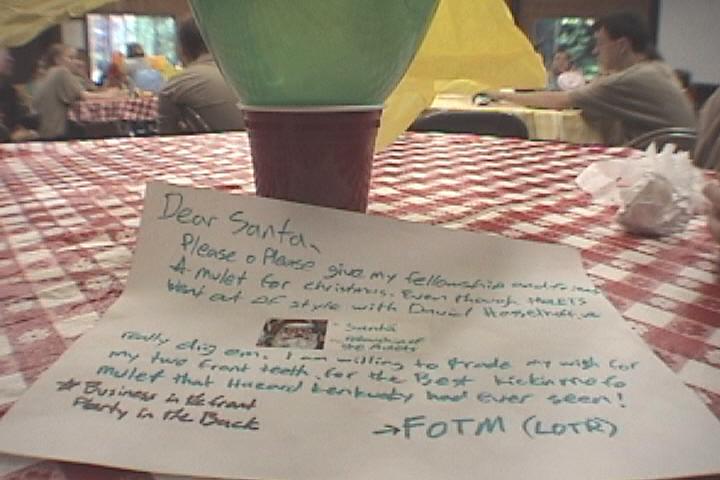 Dear Santa,
Please o Please give my fellowship and
A mulet for christmas. Even though mulets
Went out of style with David Hasselhoff, we
- Santa
- fellowship of
the mulets
really dig em. I am willing to trade my wish for
my two front teeth. for the Best kickin mofo
mulet that Hazard kentucky had ever seen!
# Business in the front
Party in the Back
→FOTM (LOTR)